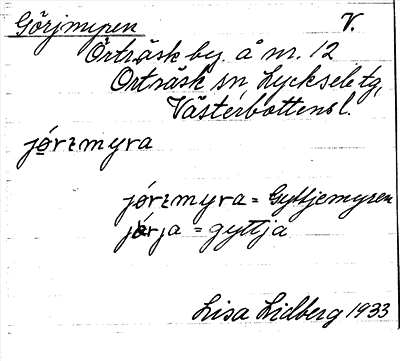 Görjmyren V.
Örträsk by å nr. 12
Örträsk sn Lycksele tg,
Västerbottens l.
jørzmyra
jørzmyra = Gyttjemyren
jørja = gyttja
Lisa Lidberg 1933